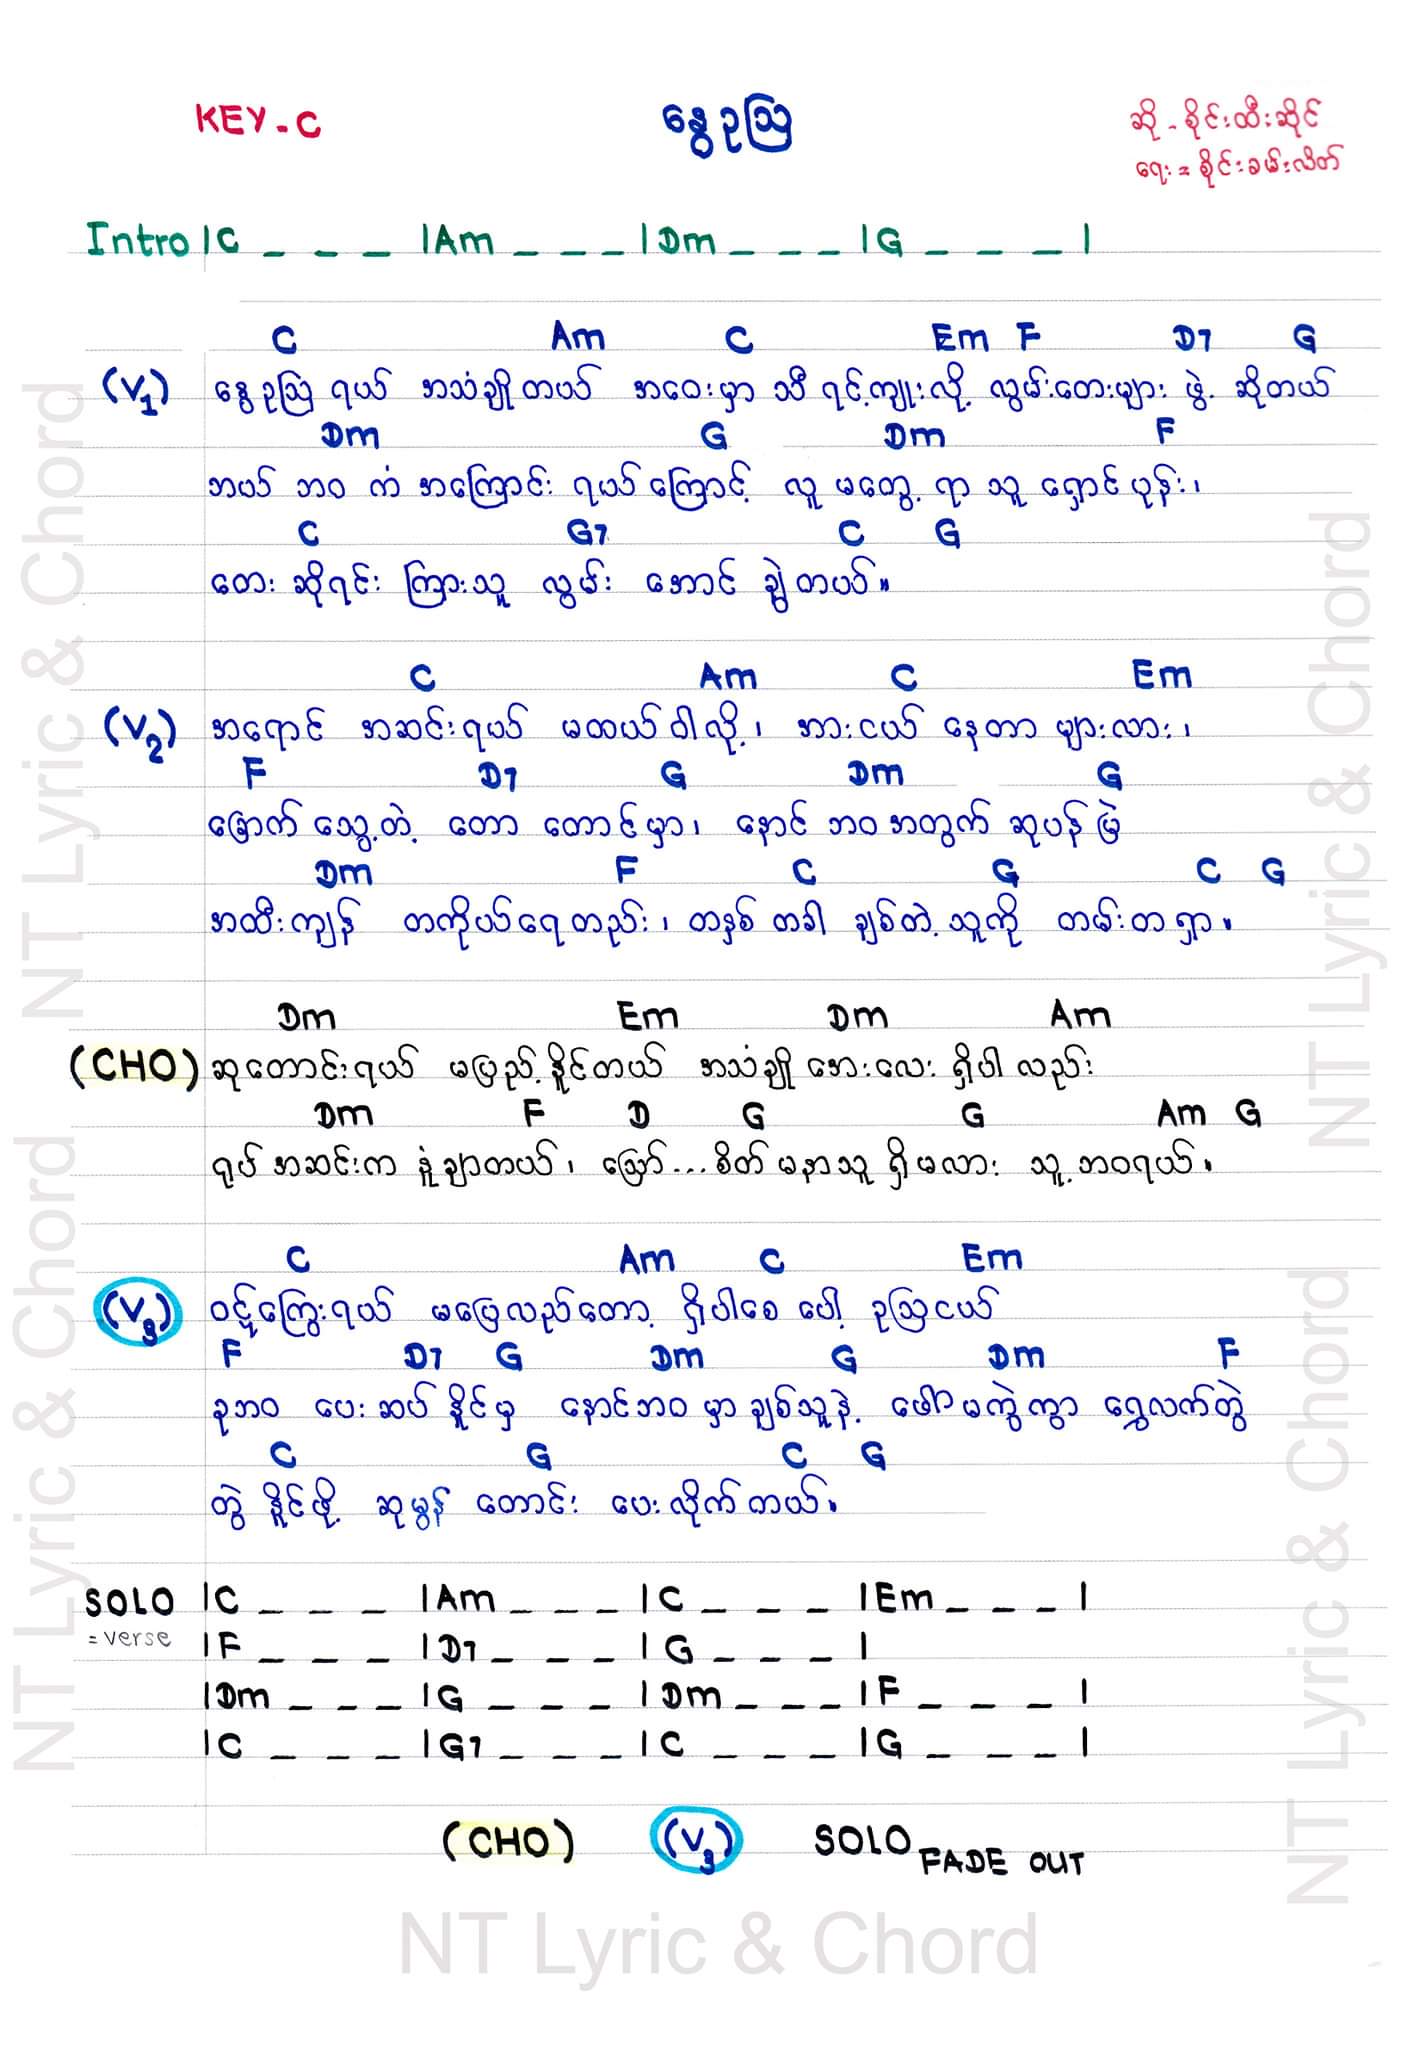 KEY - C
နွေဥဩ
ဆို - စိုင်းထီးဆိုင်
ရေး = စိုင်းခမ်းလိတ်
Intro |C _ _ _ |Am _ _ _ |Dm _ _ _ |G _ _ _ |
C Am C Em F D7 G
(V1) နွေဥဩ ရယ် အသံချိုတယ် အဝေးမှာ သီ ရင့်ကျူးလို့ လွမ်းတေးများ ဖွဲ့ ဆိုတယ်
Dm G Dm F
ဘယ် ဘဝ ကံ အကြောင်း ရယ်ကြောင့် လူ မတွေ့ ရာ သူ ရှောင်ပုန်း၊
C G7 C G
တေး ဆိုရင်း ကြားသူ လွမ်း အောင် ချွဲတယ်။
C Am C Em
(V2) အရောင် အဆင်းရယ် မတယ်ဝါလို့၊ အားငယ် နေတာ များလား၊
F D7 G Dm G
ခြောက်သွေ့တဲ့ တော တောင်မှာ၊ နောင် ဘဝအတွက် ဆုပန်မြဲ
Dm F C G C G
အထီးကျန် တကိုယ်ရေတည်း၊ တနှစ်တခါ ချစ်တဲ့သူကို တမ်းတရှာ။
Dm Em Dm Am
(CHO) ဆုတောင်းရယ် မပြည့်နိူင်တယ် အသံချို အေးလေး ရှိပါ လည်း
Dm F D G G Am G
ရုပ် အဆင်းက နွံ့ချာတယ်၊ ဪ...စိတ်မနာသူ ရှိမလား သူ့ဘဝရယ်။
C Am C Em
(V3) ဝဋ်ကြွေးရယ် မပြေလည်တော့ ရှိပါစေ ပေါ့ ဥဩငယ်
F D7 G Dm G Dm F
ခုဘဝ ပေးဆပ်နိူင်မှ နောင်ဘဝမှာချစ်သူနဲ့ ဖေါ်မကွဲကွာ ရွှေလက်တွဲ
C G C G
တွဲ နိူင်ဖို့ ဆုမွန် တောင်း ပေးလိုက်တယ်။
SOLO |C _ _ _ |Am _ _ _ |C _ _ _ |Em _ _ _ |
= verse |F _ _ _ |D7 _ _ _ |G _ _ _ |
|Dm _ _ _ |G _ _ _ |Dm _ _ _ |F _ _ _ |
|C _ _ _ |G7 _ _ _ |C _ _ _ |G _ _ _ |
(CHO) (V3) SOLO FADE OUT
NT Lyric & Chord
NT Lyric & Chord
NT Lyric & Chord
NT Lyric & Chord
NT Lyric & Chord